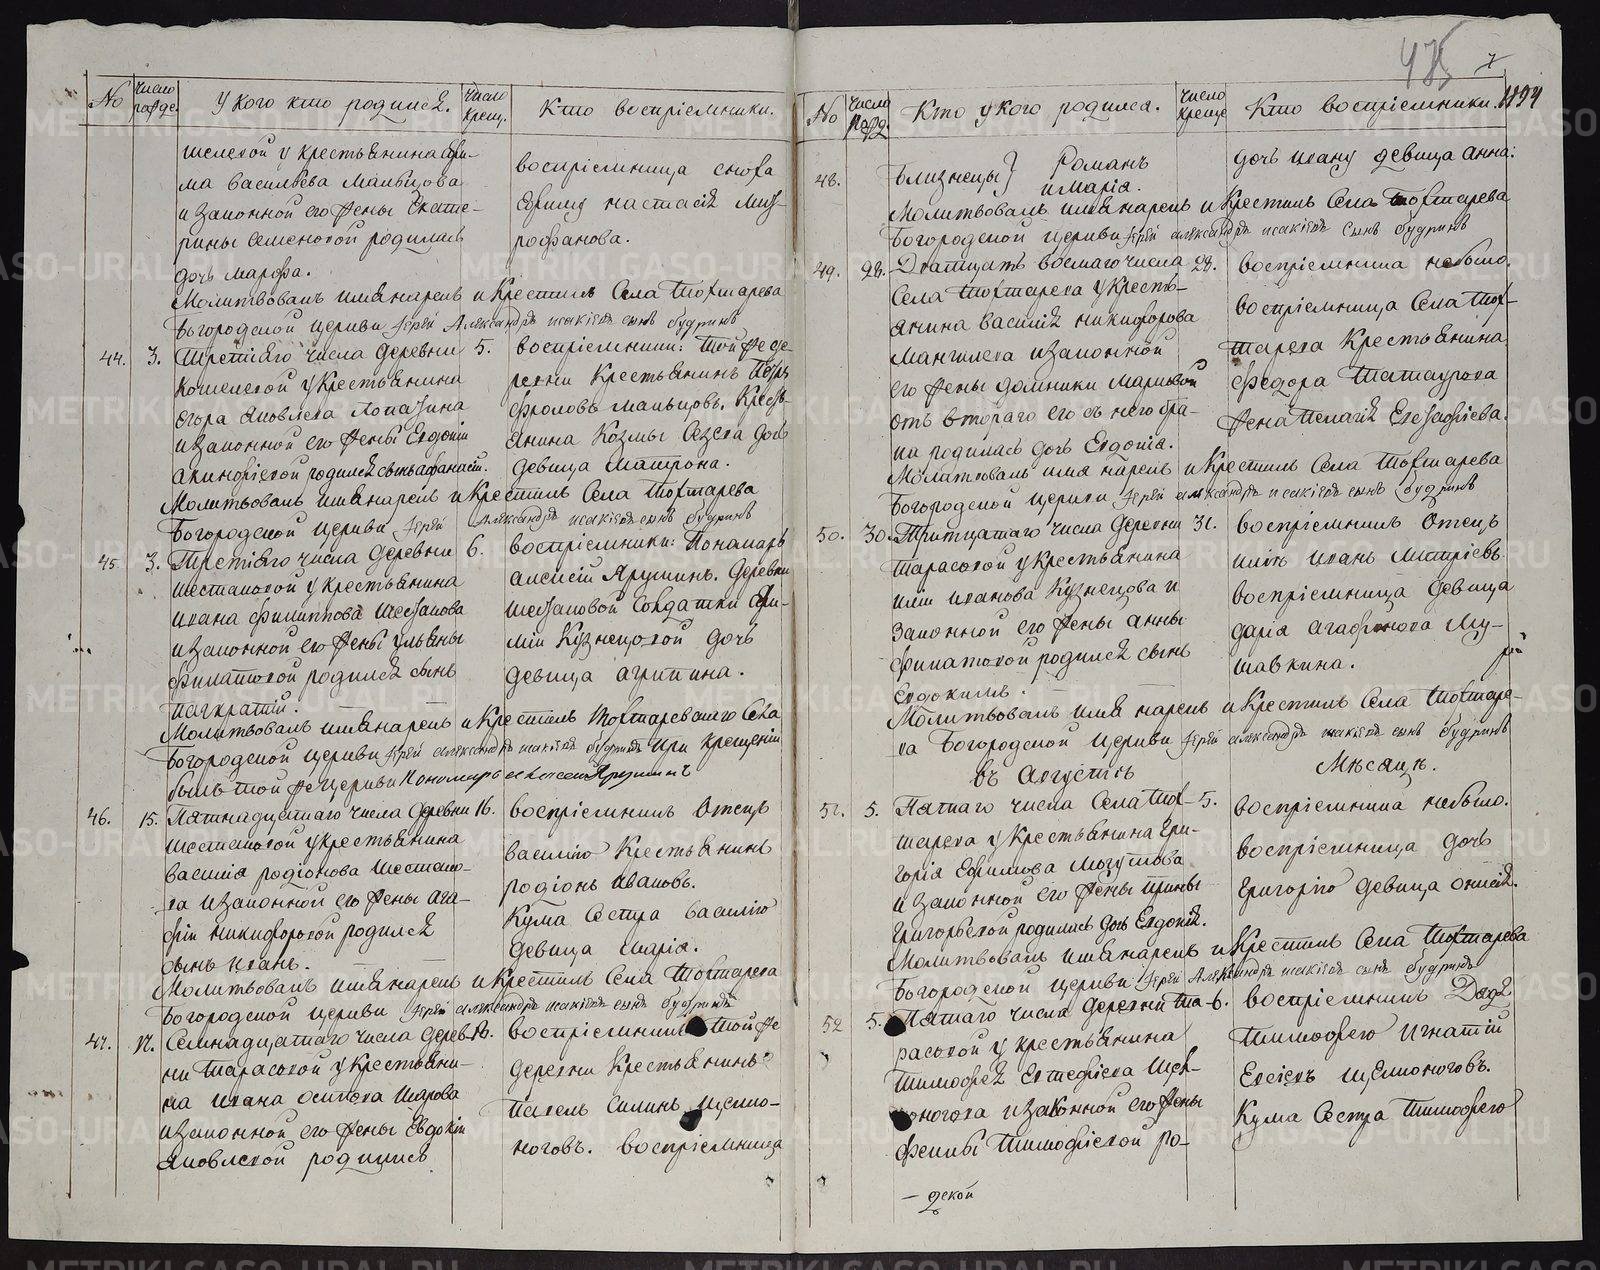 475
7
1194
No
число рожде.
У кого кто родился.
число крещ.
Кто воспріемники.
шелевой у крестьянина Ефи-
ма Васильева Мальцова
и законной его жены Екате-
рины Семеновой родилась
дочь Марфа.
воспріемница сноха
Ефиму Настасія Мит-
рофанова.
Молитвовалъ имя нарекъ и крестилъ села Тохтарева
Богородской церкви іерей Александръ Исакіевъ сынъ Будринъ
44.
3.
Третіяго числа деревни
кошелевой у крестьянина
Егора Яковлева Лопатина
и законной его жены Евдокіи
родился сынъ Афанасій.
5.
воспріемники: той же де-
ревни крестьянинъ Петръ
Фроловъ Мальцовъ. Кресть-
янина Козмы дочь
девица Матрона.
Молитвовалъ имя нарекъ и крестилъ села Тохтарева
Богородской церкви іерей Александръ Исакіевъ сынъ Будринъ
45
3.
Третіяго числа деревни
шестаковой у крестьянина
Ивана Филиппова Шестакова
и законной его жены Ульяны
Филатовой родился сынъ
Панкратій.
6.
воспріемники: Пономарь
Алексій Ярушинъ. Деревни
шестаковой Солдатки Ефи-
міи Кузнецовой дочь
девица Агрипина.
Молитвовалъ имя нарекъ и крестилъ Тохтаревскаго села
Богородской церкви іерей Александръ Исакіевъ Будринъ при крещеніи
былъ той же церкви Пономарь Алексей Ярушинъ
46.
15.
Пятнадцатаго числа деревни
шестаковой у крестьянина
Василія Родіонова Шестако-
ва и законной его жены Ага-
фіи Никифоровой родился
сынъ Иванъ.
16.
воспріемникъ Отецъ
Василію Крестьянинъ
Родіонъ Ивановъ.
Кума Сестра Василію
девица Марія.
Молитвовалъ имя нарекъ и крестилъ села Тохтарева
Богородской церкви іерей Александръ Исакіевъ сынъ Будринъ
47.
17.
Семнадцатаго числа дерев-
ни Тарасовой у крестьяни-
на Ивана Осипова Шарова
и законной его жены Евдокіи
Яковлевой родились
воспріемникъ той же
деревни Крестьянинъ
Павелъ Силинъ Щелко-
ноговъ. воспріемница
No
число рожд.
Кто у кого родился.
число креще
Кто воспріемники.
48.
близнецы} Романъ
и Марія.
дочь Ивану девица Анна.
Молитвовалъ имя нарекъ и крестилъ села Тохтарева
Богородской церкви іерей Александръ Исакіевъ сынъ Будринъ
49.
28.
Дватцать восмаго числа
села Тохтарева у кресть-
янина Василія Никифорова
Мангилева и законной
его жены Домники Марковой
отъ втораго его съ него бра-
ка родилась дочь Евдокія.
28.
воспріемника небыло.
воспріемница села Тох-
тарева Крестьянина
Федора Татаурова
жена Пелагія Евстафіева.
Молитвовалъ имя нарекъ и крестилъ села Тохтарева
Богородской церкви іерей Александръ Исакіевъ сынъ Будринъ
50.
30.
Тритцатаго числа деревни
Тарасовой у крестьянина
Иліи Иванова Кузнецова и
законной его жены Анны
Филатовой родился сынъ
Евдокимъ.
31.
воспріемникъ Отецъ
Иліи Иванъ Митріевъ
воспріемница девица
Дарія Агафонова Му-
шавкина.
Молитвовалъ имя нарекъ и крестилъ села Тохтаре-
ва Богородской церкви іерей Александръ Исакіевъ сынъ Будринъ
въ Августѣ Мѣсяцѣ.
51.
5.
Пятаго числа села Тох-
тарева у крестьянина Гри-
горія Ефимова Могутова
и законной его жены Ирины
Григорьевой родилась дочь Евдокія.
5.
воспріемника небыло.
воспріемница дочь
Григорію девица Онисія.
Молитвовалъ имя нарекъ и крестилъ села Тохтарева
Богородской церкви іерей Александръ Исакіевъ сынъ Будринъ
52
5.
Пятаго числа деревни Та-
расовой у крестьянина
Тимофея Евстефіева Щел-
коногова и законной его жены
Феклы Тимофіевой ро-
6.
воспріемникъ Дядя
Тимофею Игнатій
Евсіевъ Щелконоговъ.
Кума Сестра Тимофею
METRIKI.GASO-URAL.RU